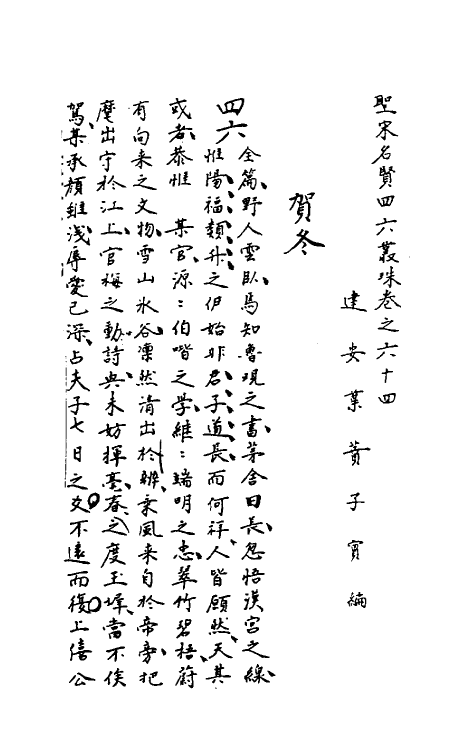 聖宋名賢四六叢珠卷之六十四
建安葉蕡子實編
賀冬
四六
全篇野人雲臥焉知魯觀之書茅舍日長忽悟漢宮之線
惟陽福類升之伊始非君子道長而何祥人皆頤然天其
或者恭惟 某官源：伯喈之学維：端明之忠萃竹碧梧蔚
有向来之文物雪山氷谷凜然清出於辨秉風来自於帝旁把
麾出守於江上官梅之動詩兴未妨揮毫春之度玉墀當不俟
駕某承顔雖淺辱愛已深占夫子七日之爻不遠而復上僖公